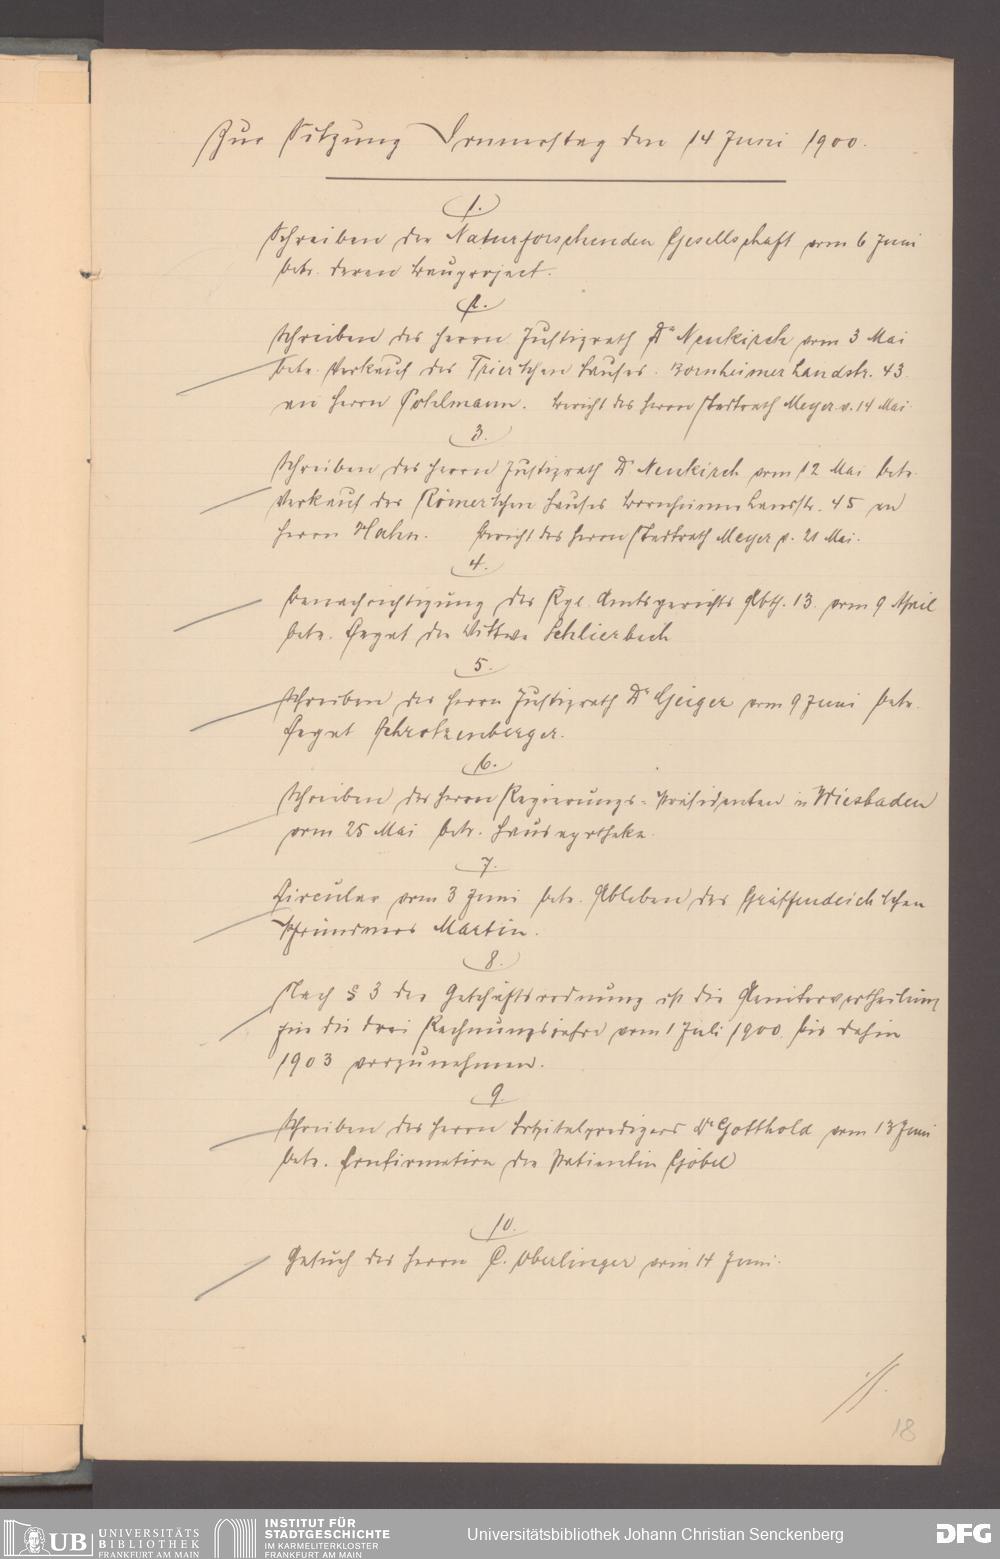 Zur Sitzung Donnerstag den 14 Juni 1900.
1.
Schreiben der Naturforschenden Gesellschaft vom 6 Juni
betr. deren Bauproject.
2.
Schreiben des Herrn Justizrath Dr Neukirch vom 3 Mai
betr. Verkauf des Trier'schen Hauses. Bornheimer Landstr. 43
an Herrn Pohlmann. Bericht des Herrn Stadtrath Meyer v. 14 Mai.
3.
Schreiben des Herrn Justizrath Dr Neukirch vom 12 Mai betr.
Verkauf des Römer'schen Hauses Bornheimer Landstr. 45 an
Herrn Hahn. Bericht des Herrn Stadtrath Meyer v. 21 Mai.
4.
Benachrichtigung des Kgl. Amtsgerichts Abth. 13. vom 9 April
betr. Legat der Wittwe Schlierbach
5.
Schreiben des Herrn Justizrath Dr Geiger vom 9 Juni betr.
Legat Schrotzenberger.
6.
Schreiben des Herrn Regierungs-Präsidenten in Wiesbaden
vom 25 Mai betr. Hausapotheke.
7.
Circular vom 3 Juni betr. Ableben des Gräffendeich'schen
Pfründners Martin.
8.
Nach § 3 der Geschäftsordnung ist die Aemtervertheilung
für die drei Rechnungsjahre vom 1 Juli 1900. bis dahin
1903 vorzunehmen.
9.
Schreiben des Herrn Hospitalpredigers Dr Gotthold vom 13 Juni
betr. Confirmation der Patientin Göbel
10.
Gesuch des Herrn C. Oberlinger vom 14 Juni.
18
UB UNIVERSITÄTS
BIBLIOTHEK
FRANKFURT AM MAIN
INSTITUT FÜR
STADTGESCHICHTE
IM KARMELITERKLOSTER
FRANKFURT AM MAIN
Universitätsbibliothek Johann Christian Senckenberg
DFG